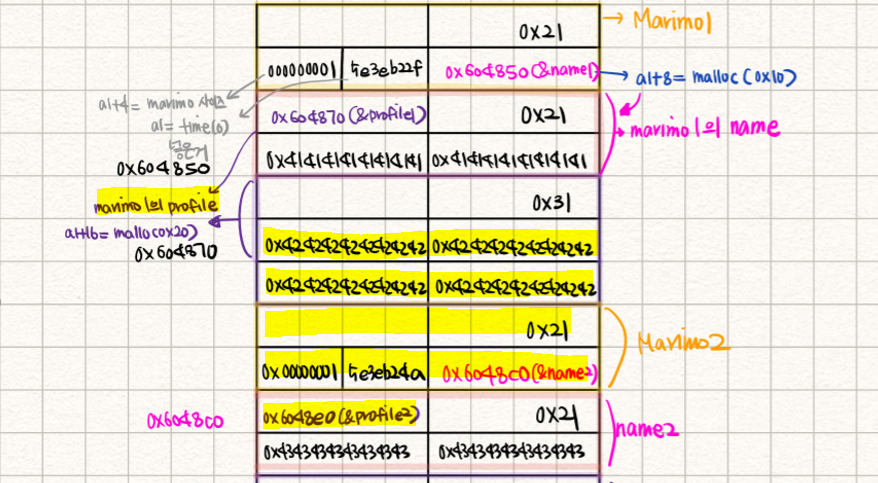 0x21
→ Marimo1
00000001 5e3eb22f 0x604850(&name1) → a1+8 = malloc(0x10)
a1+4 = marimo 사이즈
a1 = time(0)
넣은거
0x604870(&profile1) 0x21
marimo1의 name
0x604850
0x4141414141414141 0x4141414141414141
0x31
marimo1의 profile
a1+16 = malloc(0x20)
0x604870
0x4242424242424242 0x4242424242424242
0x4242424242424242 0x4242424242424242
0x21
Marimo2
0x00000001 5e3eb24a 0x6048c0(&name2)
0x6048c0
0x6048e0(&profile2) 0x21
name2
0x4343434343434343 0x4343434343434343